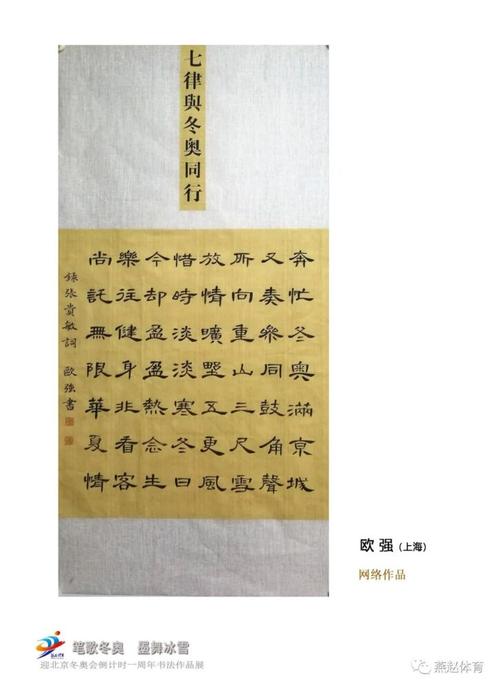 七律與冬奥同行
奔忙冬奥滿京城
又奏衆同鼓角聲
所向重山三尺雪
放情曠野五更風
惜時淡淡寒冬日
今却盈盈熱念生
樂往健身非看客
尚託無限華夏情
錄張貴敏詞 欧強書
欧 强（上海）
网络作品
笔歌冬奥 墨舞冰雪
迎北京冬奥会倒计时一周年书法作品展
燕赵体育